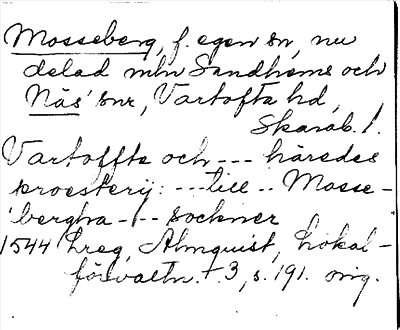 Mosseberg, f. egen sn, nu
delad mln Sandhems och
Näs' snr, Vartofta hd,
Skarab. l.
Vartoffta och --- häredes
proesterij: --- till -- Mosse-
bergha --- sockner
1544 Lreg, Almquist, Lokal-
förvaltn. + 3, s. 191. orig.